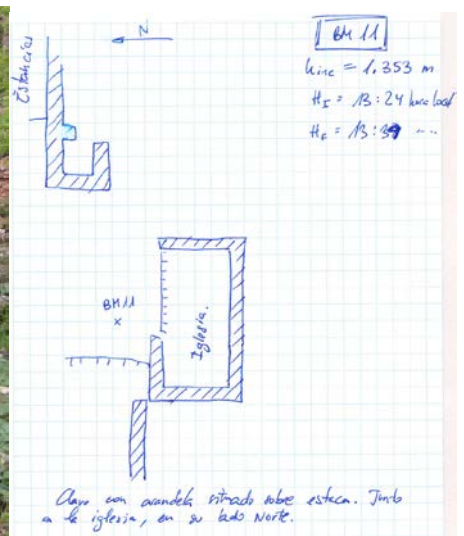 BM 11
hinc = 1.353 m
HI = 13:24 hora local
HF = 13:39 ---
Estancias
N
BM11
Iglesia.
Clavo con arandela situado sobre estaca. Junto
a la iglesia, en su lado Norte.